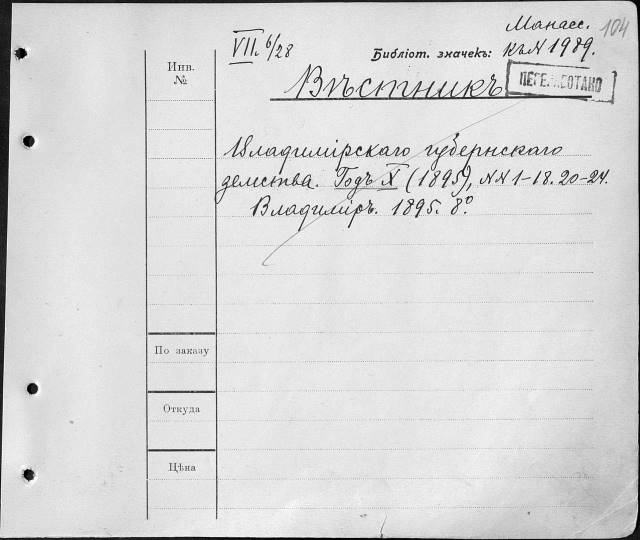 104
Манасс.
VII. 6/28
Библіот. значекъ: къ N 1989.
Инв.
№
Вѣстникъ
ПЕРЕРАБОТАНО
Владимірскаго губернскаго
земства. Годъ X (1895), NN 1-18. 20-24.
Владиміръ. 1895. 8º.
По заказу
Откуда
Цѣна